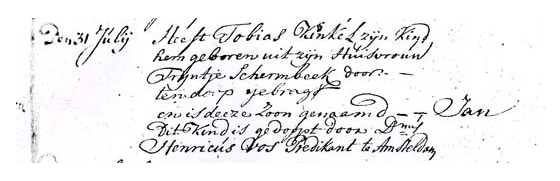 Den 31 Julij Heeft Tobias Kinkel zijn Kind
hem geboren uit zijn Huisvrouw
Trijntje Schermbeek door —
ten doop gebragt
en is deeze Zoon genaamd — — Jan
Dit Kind is gedoopt door Dms
Henricus Vos Predikant te Amsteldam